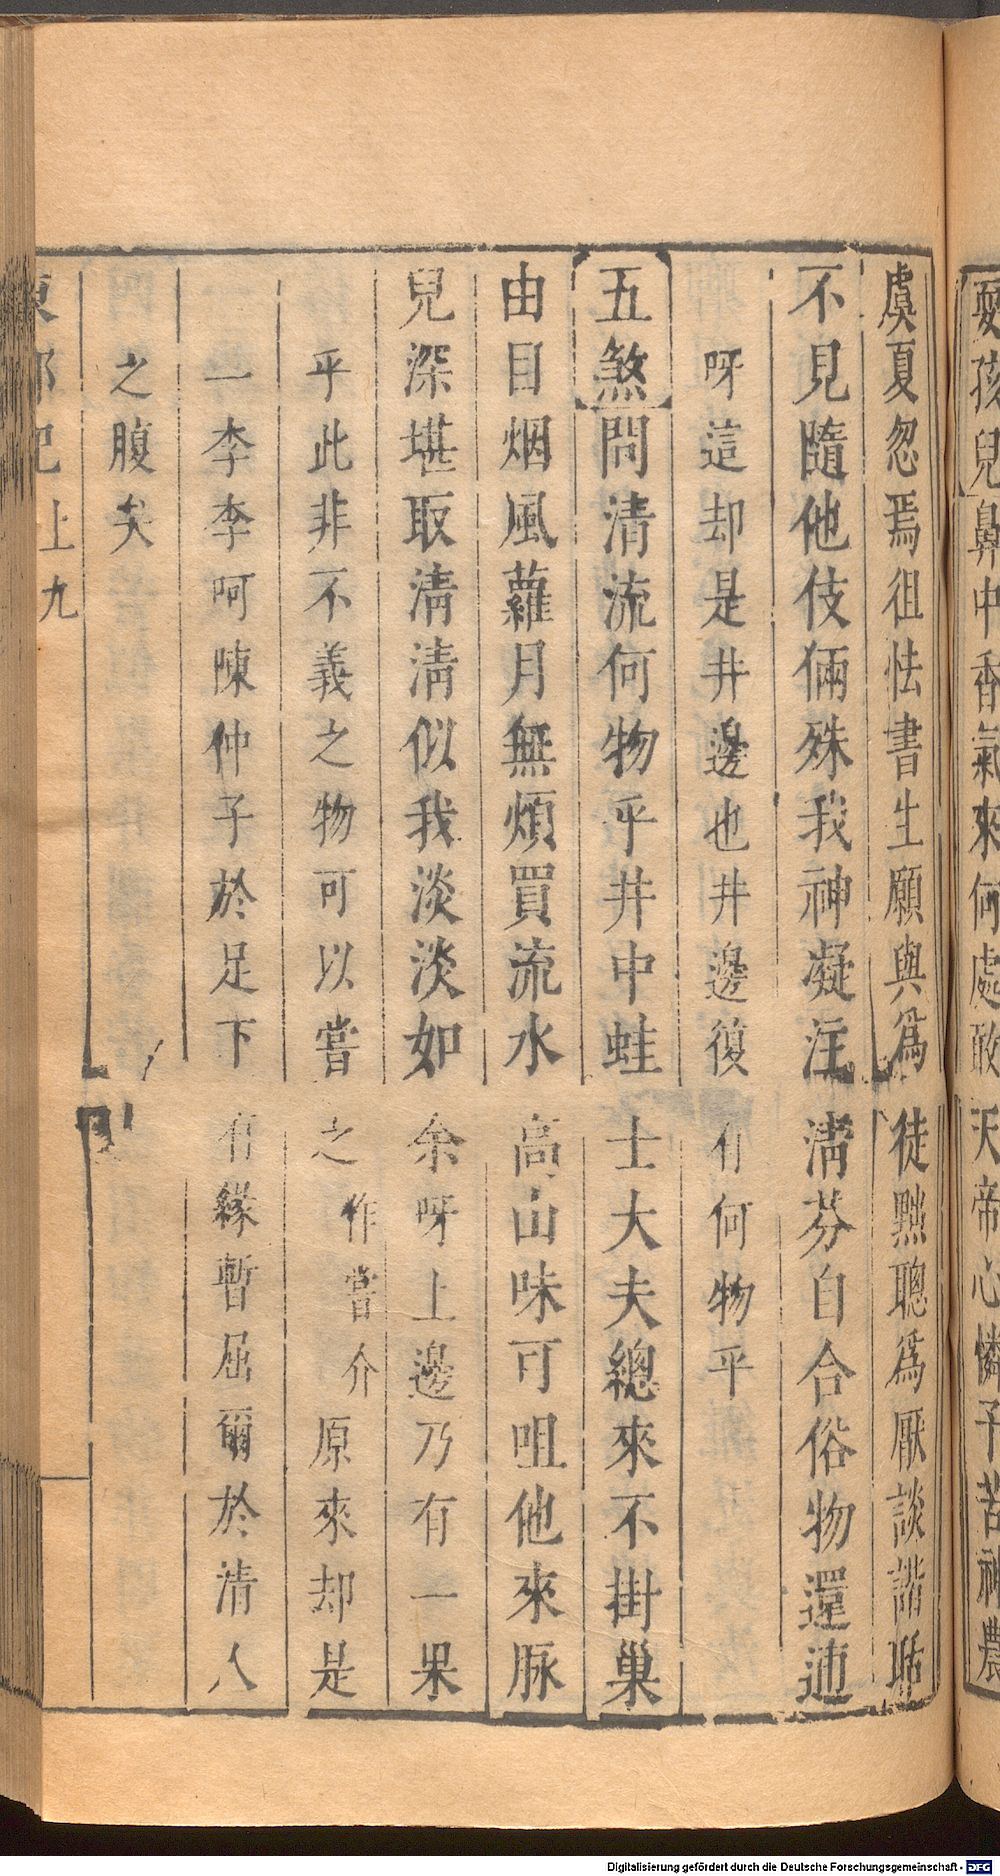 耍孩兒鼻中香氣來何處敢天帝心憐子苦神農
虞夏忽焉徂怯書生願與爲徒黜聰爲厭談諧聒
不見隨他伎倆殊我神凝注清芬自合俗物還逋
呀這却是井邊也井邊復有何物乎
五煞問清流何物乎井中蛙士大夫總來不掛巢
由目烟風蘿月無煩買流水高山味可咀他來脉
兒深堪取清清似我淡淡如余呀上邊乃有一果
乎此非不義之物可以嘗之作嘗介原來却是
一李李呵陳仲子於足下有緣暫屈爾於清人
之腹矣
東郭記上九
Digitalisierung gefördert durch die Deutsche Forschungsgemeinschaft - DFG